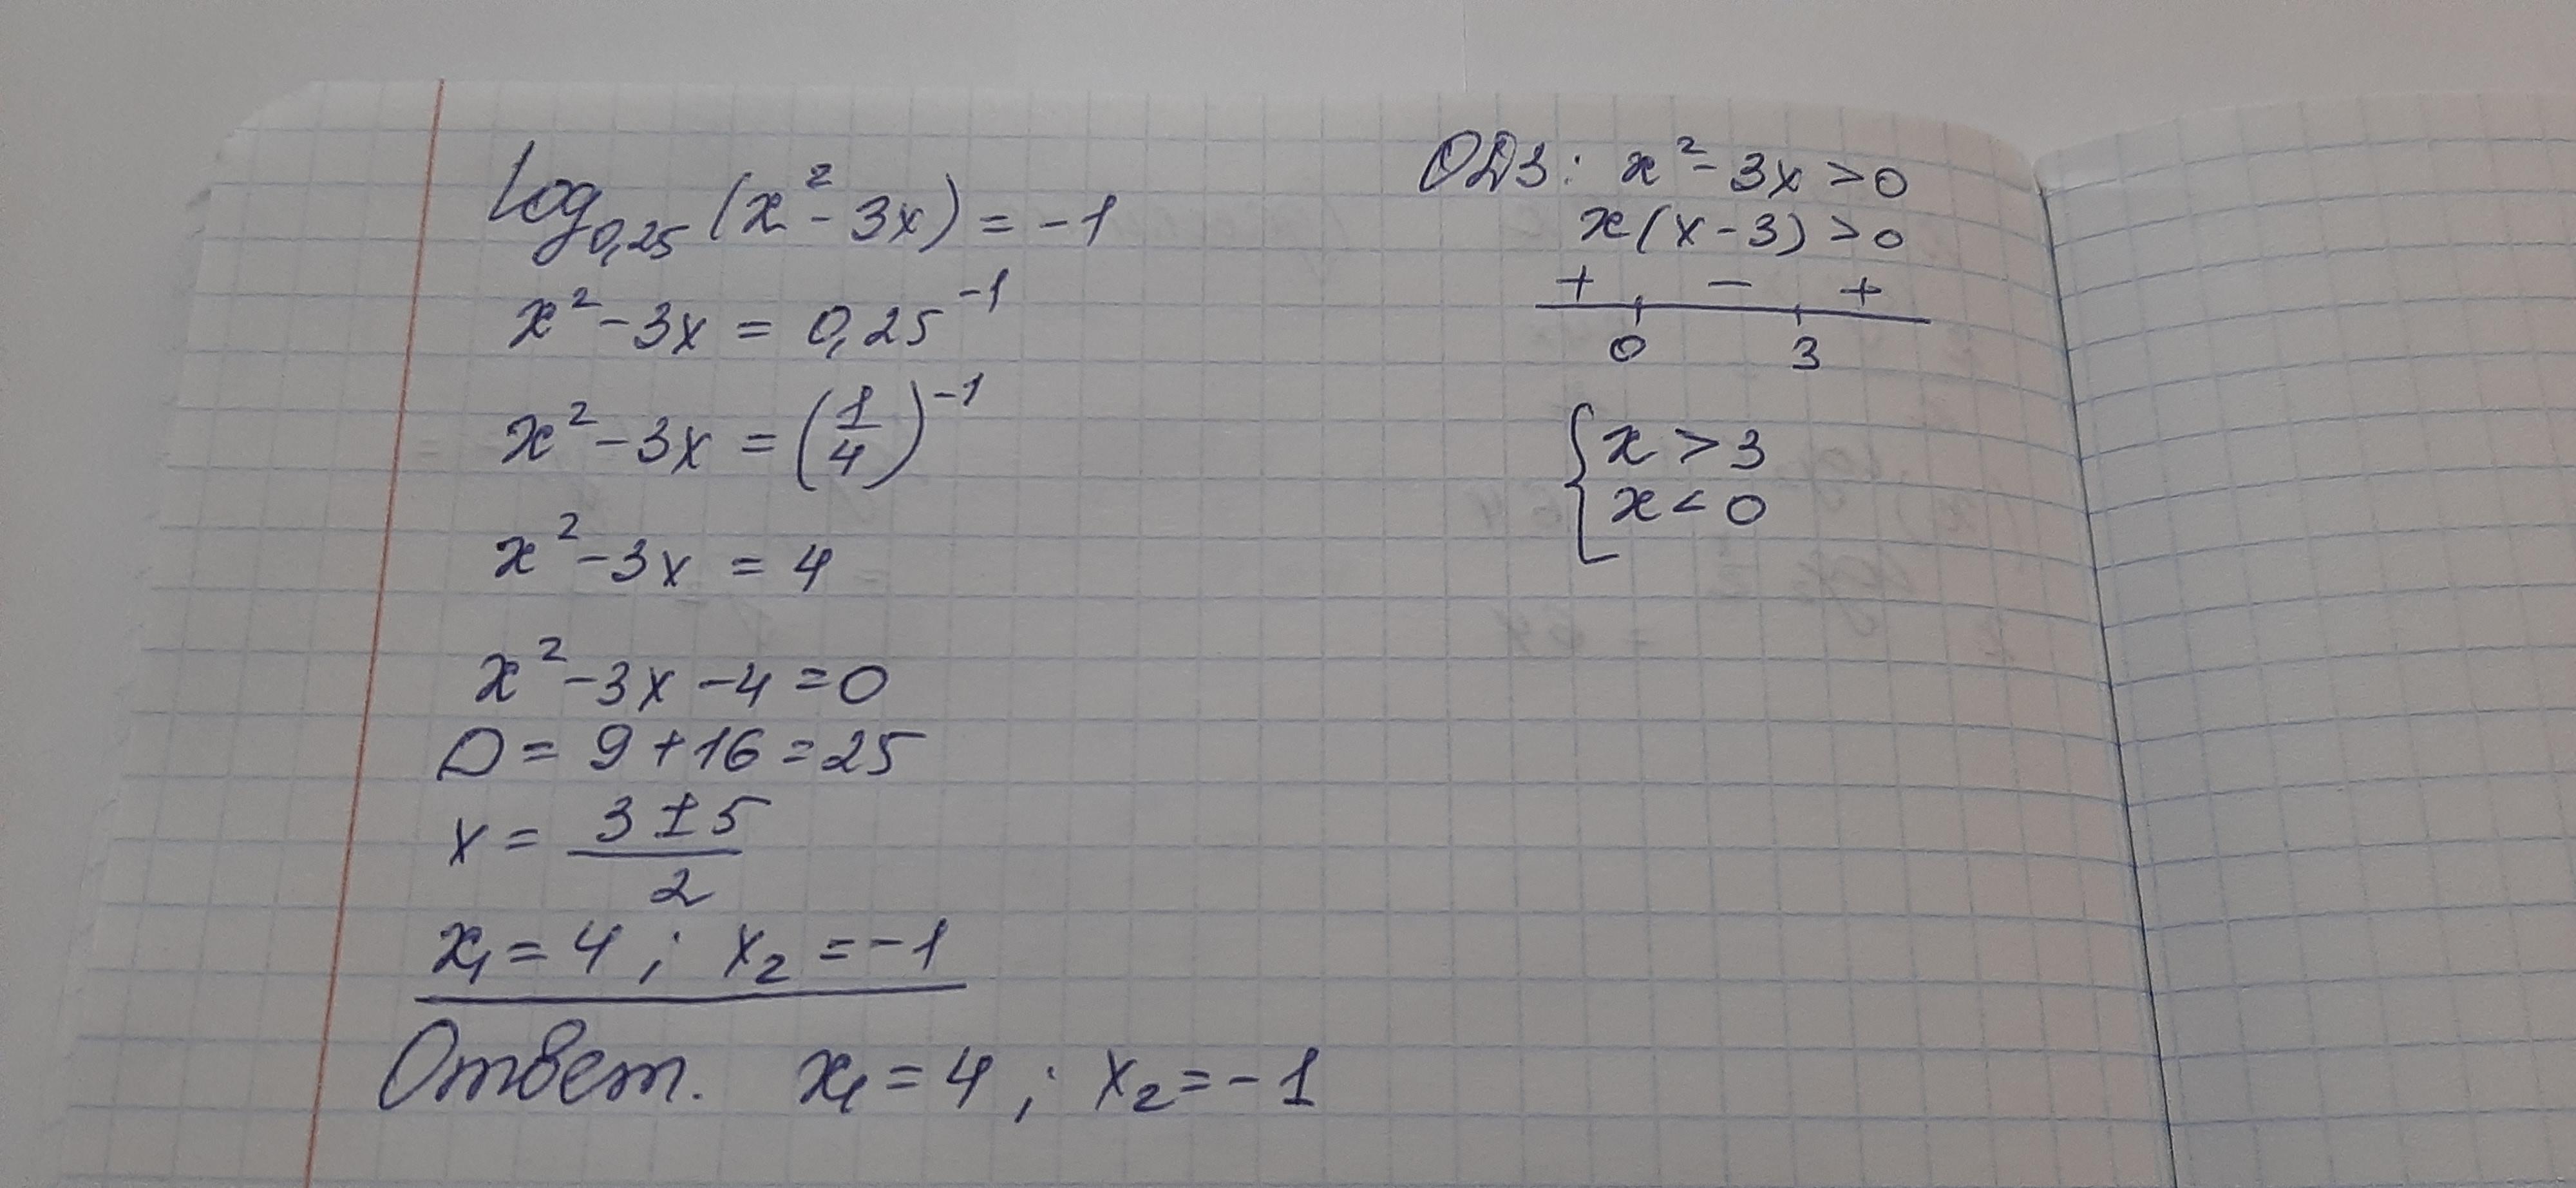 log₀,₂₅ (x² - 3x) = -1
x² - 3x = 0,25⁻¹
x² - 3x = (1/4)⁻¹
x² - 3x = 4
x² - 3x - 4 = 0
D = 9 + 16 = 25
x = (3 ± 5)/2
x₁ = 4 ; x₂ = -1
Ответ. x₁ = 4 ; x₂ = -1
ОДЗ: x² - 3x > 0
x(x - 3) > 0
+ - +
0 3
{ x > 3
x < 0